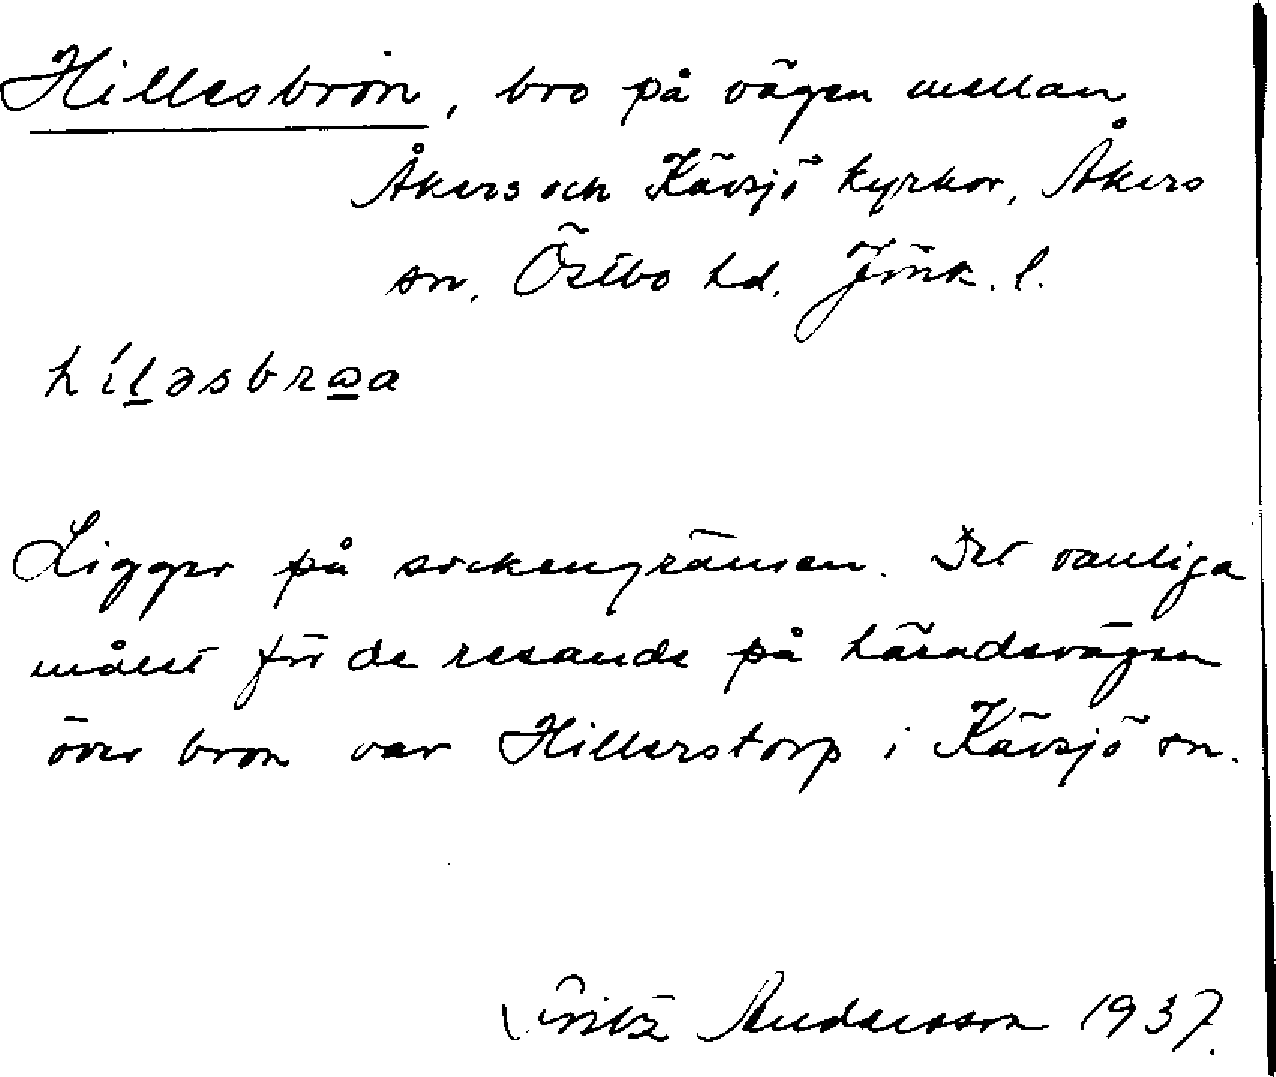 Hillesbron, bro på vägen mellan
Åkers och Kävsjö kyrkor, Åkers
sn, Östbo hd, Jönk. l.
hílǝsbrɷa
Ligger på sockengränsen. Det vanliga
målet för de resande på häradsvägen
över bron var Hillerstorp i Kävsjö sn.
Fritz Andersson 1937.